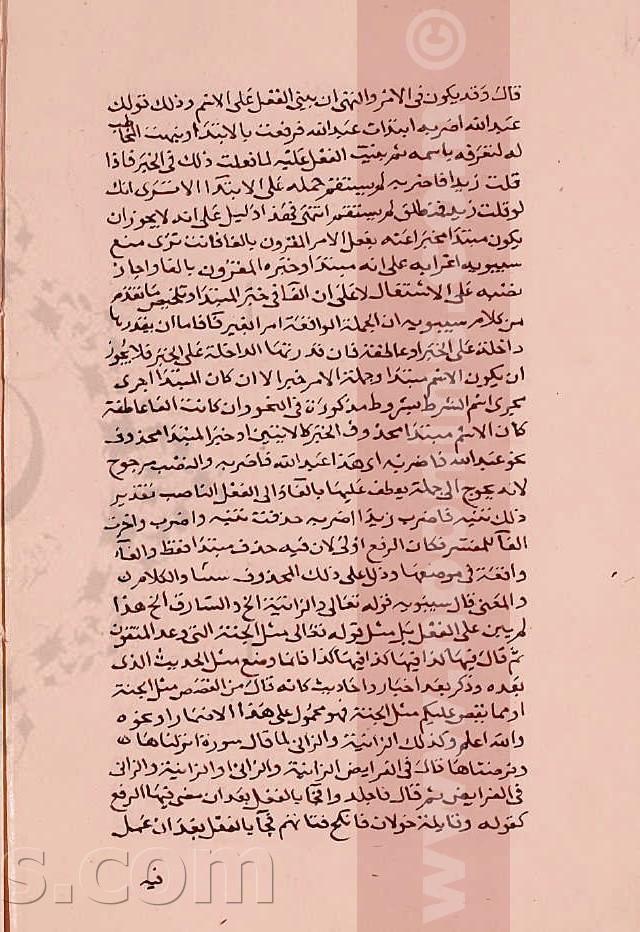 قال وقد يكون في الامر والنهي ان يبني الفعل على الاسم وذلك قولك
عبدالله اضربه ابتدات عبدالله فرفعت بالابتدا ونبهت المخاطب
له لتعرفه باسمه ثم بنيت الفعل عليه كما فعلت ذلك في الخبر فاذا
قلت زيدا فاضربه لم يستقم حمله على الابتدا الا ترى انك
لو قلت زيد فمنطلق لم يستقم انتهى فهذا دليل على انه لا يجوز ان
يكون مبتدا مخبرا عنه بفعل الامر المقرون بالفا فانت ترى منع
سيبويه اعرابه على انه مبتدا وخبره المقترون بالفا واجاز
نصبه على الاشتغال لا على ان الفا في خبر المبتدا وتلخيص ما تقدم
من كلام سيبويه ان الجملة الواقعة امرا بغير فا فاما ان يقدرها
داخلة على الخبر او عاطفة فان قدرتها الداخلة على الخبر فلا يجوز
ان يكون الاسم مبتدا وجملة الامر خبرا الا ان كان المبتدا اجرى
مجرى اسم الشرط بشروط مذكورة في النحو وان كانت الفا عاطفة
كان الاسم مبتدا محذوف الخبر كالايتين او خبر المبتدا محذوف
نحو عبدالله فاضربه اى هذا عبدالله فاضربه والنصب مرجوح
لانه يحوج الى جملة يعطف عليها بالفاء الى الفعل الناصب تقدير
ذلك تنبه فاضرب زيدا اضربه حذفت تنبه واضرب واخرت
الفا للمفسر فكان الرفع اولى لان فيه حذف مبتدا فقط والفا
واقعة في موضعها ودل على ذلك المحذوف والكلام
والمعنى قال سيبويه قوله تعالى والزانية الخ والسارق الخ هذا
لم يبن على الفعل بل مثل قوله تعالى مثل الجنة التى وعد المتقون
ثم قال فيها كذا فيها كذا فيها كذا فانما وضع مثل للحديث الذى
بعده وذكر بعد اخبار واحاديث كانه قال من القصص مثل الجنة
او مما يقص عليكم مثل الجنة فهو محمول على هذا الاضمار او نحوه
والله اعلم وكذلك الزانية والزاني لما قال سورة انزلناها
وفرضناها قال في الفرايض الزانية والزاني او الزانية والزاني
في الفرايض ثم قال فاجلدوا فجا بالفعل بعد ان مضى فيها الرفع
كقوله وقايلة خولان فانكح فتاتهم فجا بالفعل بعد ان عمل
فيه